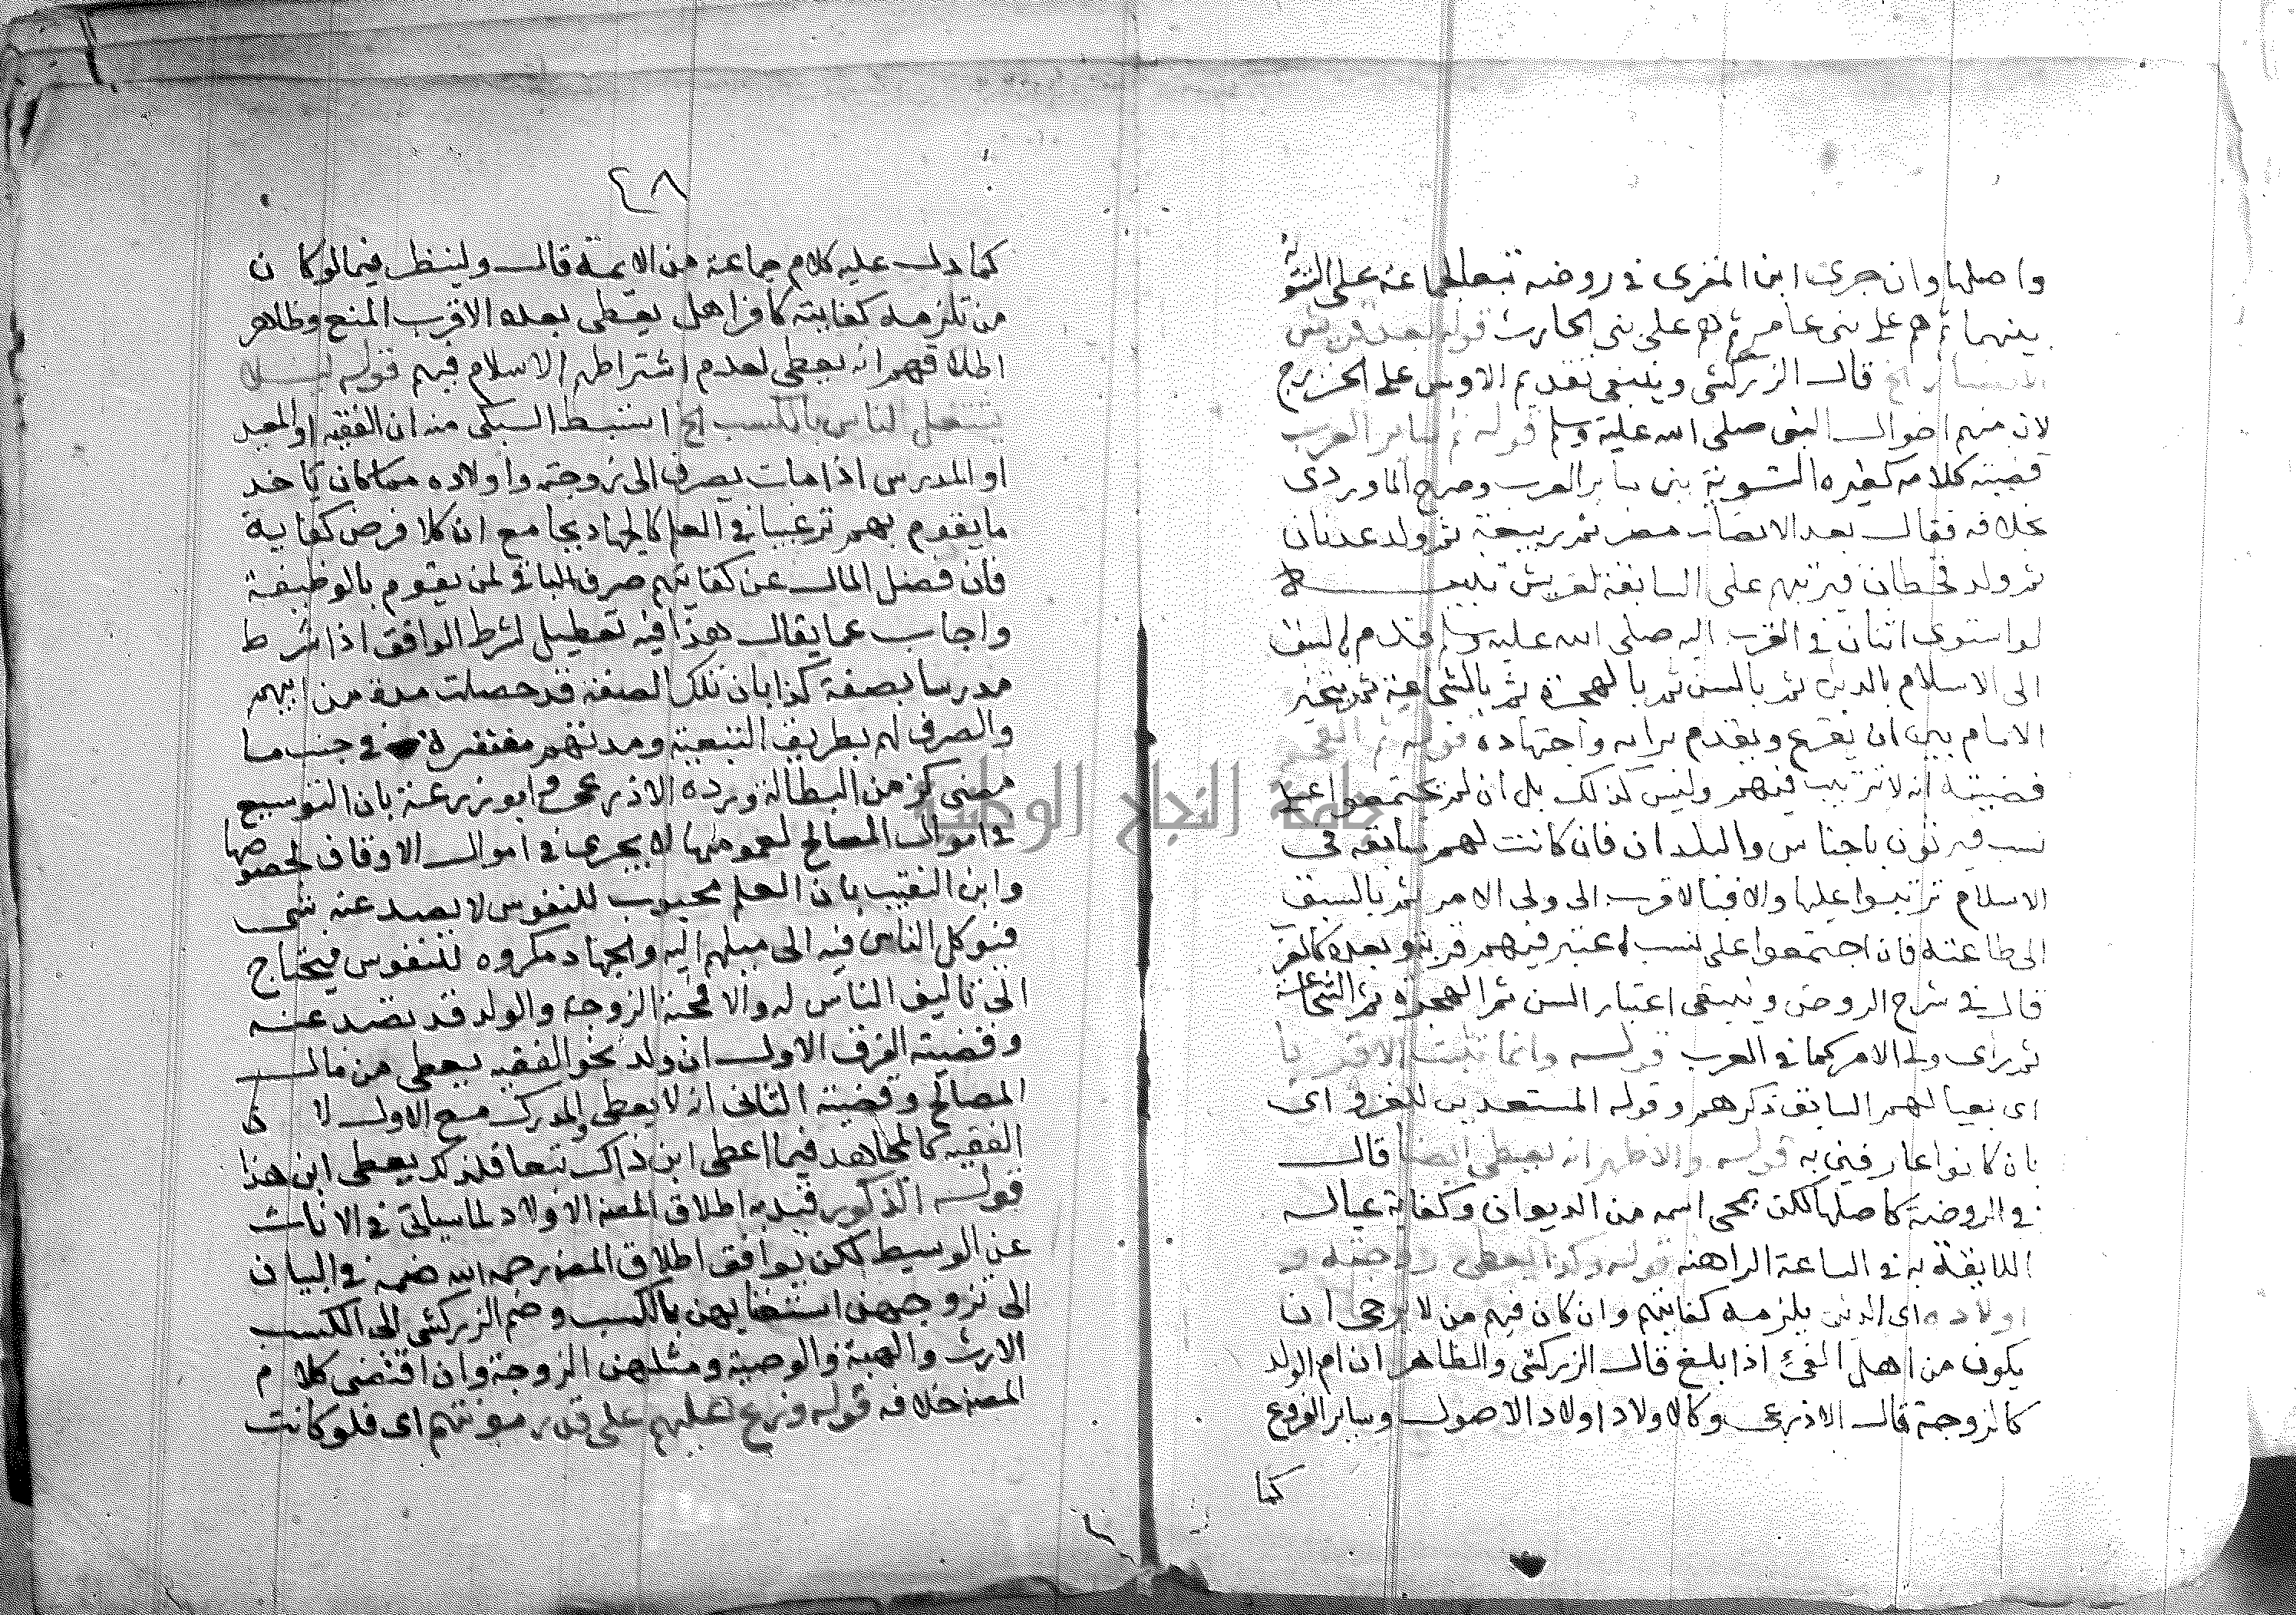 واصلها وان جرى ابن المقرى في روضه تبعا لجماعة على التسوية
بينهما ثم هم على بنى عامر ثم هم على بنى الحارث قوله بعد قريش
الانصار الخ قال الزركشى وينبغى تقديم الاوس على الخزرج
لان منهم اخوال النبى صلى الله عليه وسلم قوله ثم ساير العرب
قضيته كلامه كغيره التسوية بين ساير العرب وصرح الماوردى
بخلافه فقال بعد الانصار مضر ثم ربيعة ثم ولد عدنان
ثم ولد قحطان فيرتبهم على السابقة لقريش تنبيه
لو استوى اثنان في القرب اليه صلى الله عليه وسلم قدم لسبق
الى الاسلام بالدين ثم بالسن ثم بالهجرة ثم بالشجاعة ثم يتخير
الامام بين ان يقرع ويقدم برايه واجتهاده قوله ثم العجم
قضيته انه لا ترتيب فيهم وليس كذلك بل ان لم يجتمعوا على
نسب فيرتبون باجناس والبلدان فان كانت لهم سابقه في
الاسلام ترتبوا عليها والا فبالاقرب الى ولى الامر ثم بالسبق
الى طاعته فان اجتمعوا على نسب اعتبر فيهم قربه وبعده كالعرب
قال في شرح الروض وينبغى اعتبار السن ثم الهجرة ثم الشجاعة
ثم راى ولى الامر كما في العرب قوله وانما تثبت الاقربا
اى تبعا لهم السابق ذكرهم وقوله المستعدين للغزو اى
بان كانوا عارفين به قوله والاظهر انه يعطى ايضا قال
في الروضة كاصلها لكن يمحى اسمه من الديوان وكفاية عياله
اللايقة به في الساعة الراهنه قوله وكذا يعطى زوجته و
اولاده اى الذين يلزمه كفايتهم وان كان فيهم من لا يرجى ان
يكون من اهل الفئ اذا بلغ قال الزركشى والظاهر ان ام الولد
كالزوجة قال الاذرعى وكالاولاد اولاد الاصول وساير الفروع
كما
٤٨
كما دل عليه كلام جماعة من الايمة قال ولينظر فيما لو كان
من تلزمه كفايته كافرا هل يعطى بعده الاقرب المنع وظاهر
اطلاقهم انه يعطى لعدم اشتراطهم الاسلام فيهم قوله ليلا
يشتغل الناس بالكسب الخ استنبط السبكى منه ان الفقيه او المعيد
او المدرس اذا مات يصرف الى زوجته واولاده مما كان ياخذ
ما يقوم بهم ترغيبا في العلم كالجهاد بجامع ان كلا فرض كفاية
فان فضل المال عن كفايتهم صرف الباقى لمن يقوم بالوظيفة
واجاب عما يقال هذا فيه تعطيل لشرط الواقف اذا شرط
مدرسا بصفة كذا بان تلك الصفة قد حصلت مدة من ابيهم
والصرف لهم بطريق التبعية ومدتهم مغتفرة في جنب ما
مضى كزمن البطالة ورده الاذرعى وابو زرعة بان التوسيع
في اموال المصالح لعمومها لا يجرى في اموال الاوقاف لخصوصها
وابن النقيب بان العلم محبوب للنفوس لا يصد عنه شى
فنوكل الناس فيه الى ميلهم اليه والجهاد مكروه للنفوس فيحتاج
الى تاليف الناس له والا فمحبة الزوجة والولد قد تصد عنه
وقضيته الفرق الاول ان ولد نحو الفقيه يعطى من مال
المصالح وقضيته الثانى انه لا يعطى والمدرك مع الاول لان
الفقيه كالمجاهد فيما اعطى ابن ذاك تبعا فلذلك يعطى ابن هذا
قوله الذكور قيد به اطلاق المصنف الاولاد لما سياتى في الاناث
عن الوسيط لكن يوافق اطلاق المصنف رحمه الله ضمه في البيان
الى تزوجهن استغنايهن بالكسب وضم الزركشى الى الكسب
الارث والهبة والوصية ومثلهن الزوجة وان اقتضى كلام
المصنف خلافه قوله وزرع عليهم على قدر مونتهم اى فلو كانت
جامعة النجاح الوطنية